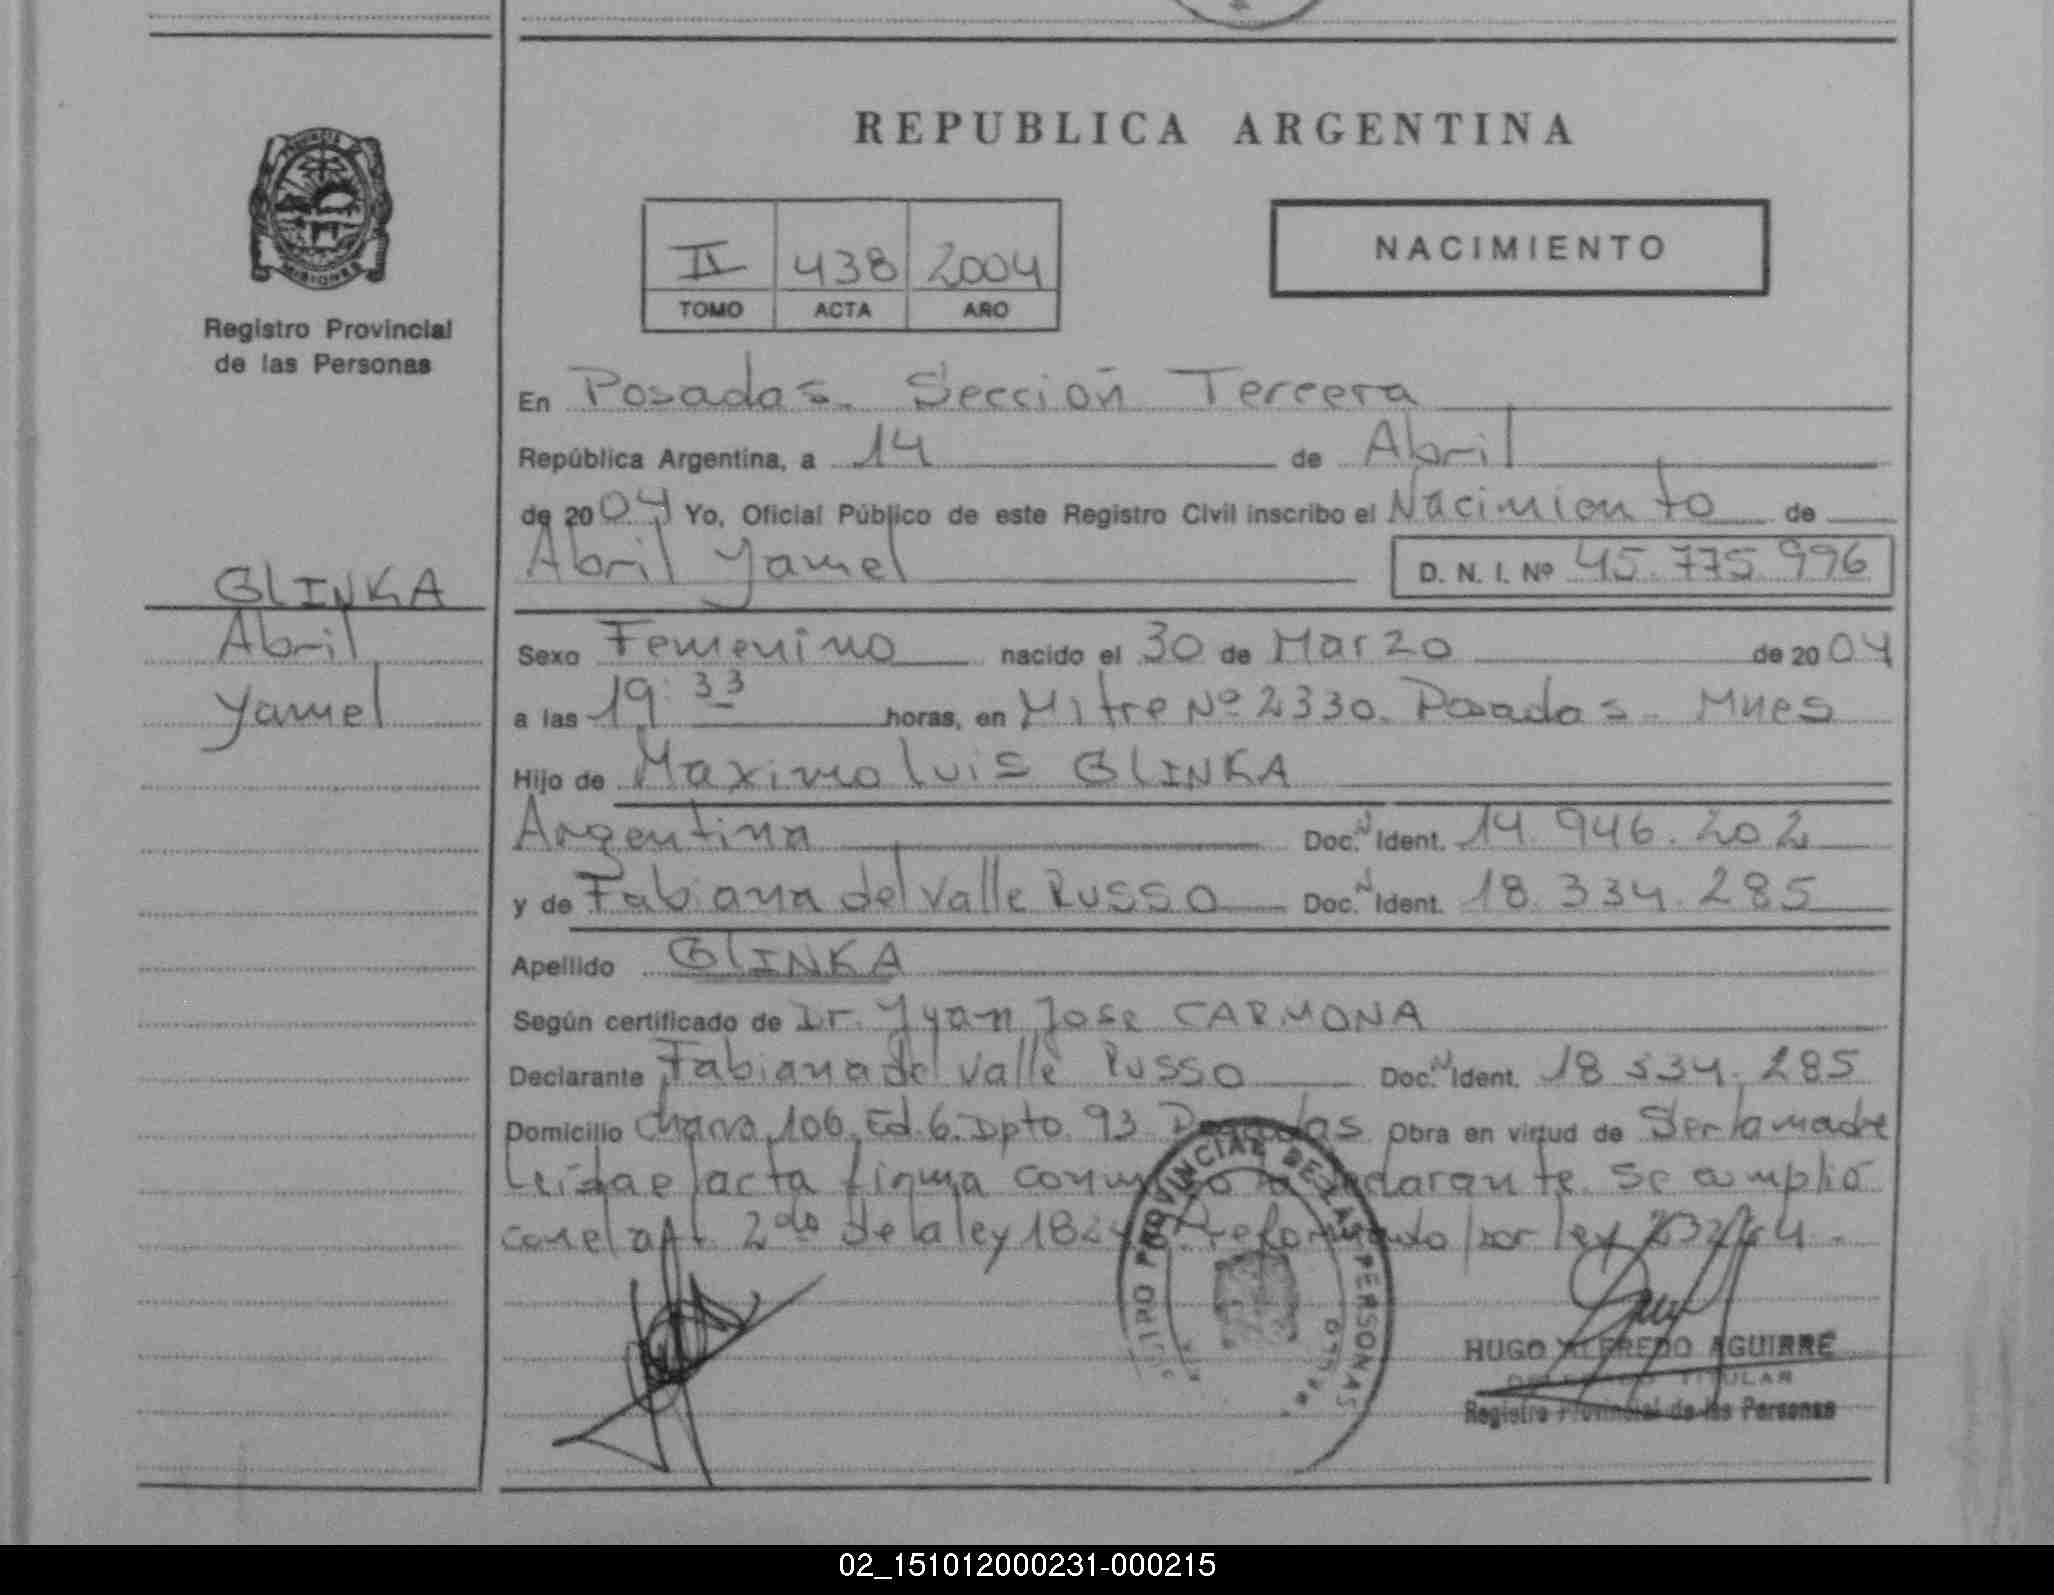 REPUBLICA ARGENTINA
PROVINCIA
MISIONES
Registro Provincial
de las Personas
II 438 2004
TOMO ACTA AÑO
NACIMIENTO
En Posadas. Sección Tercera
República Argentina, a 14 de Abril
de 2004 Yo, Oficial Público de este Registro Civil inscribo el Nacimiento de
Abril Yamel D. N. I. Nº 45.775.996
GLINKA
Abril
Yamel
Sexo Femenino nacido el 30 de Marzo de 2004
a las 19:33 horas, en Mitre Nº 2330. Posadas - Mnes
Hijo de Maximo Luis GLINKA
Argentina Doc. N Ident. 14.946.202
y de Fabiana del Valle RUSSO Doc. N Ident. 18.334.285
Apellido GLINKA
Según certificado de Dr. Juan Jose CARMONA
Declarante Fabiana del Valle RUSSO Doc. N Ident. 18 334.285
Domicilio Chacra 106. Ed. 6. Dpto. 93 Posadas Obra en virtud de Ser la madre
Leída el acta firma conmigo la declarante. Se cumplió
con el art. 2do de la ley por ley
PROVINCIAL DE LAS PERSONAS
HUGO ALFREDO AGUIRRE
TITULAR
Registro Provincial de las Personas
02_151012000231-000215